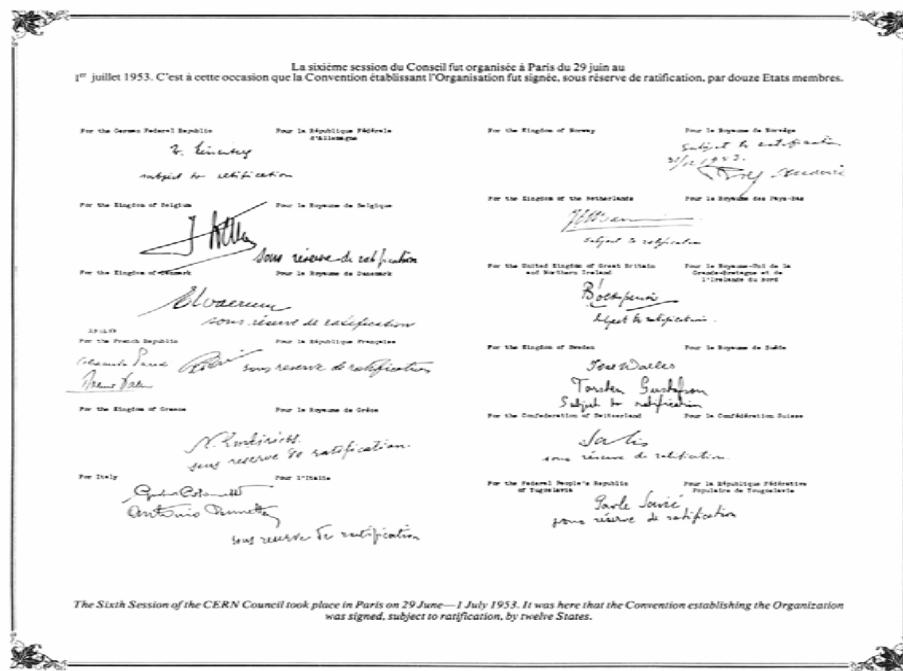 La sixième session du Conseil fut organisée à Paris du 29 juin au
1er juillet 1953. C'est à cette occasion que la Convention établissant l'Organisation fut signée, sous réserve de ratification, par douze Etats membres.
For the German Federal Republic
Pour la République Fédérale
d'Allemagne
subject to ratification
For the Kingdom of Belgium
Pour le Royaume de Belgique
sous réserve de ratification
For the Kingdom of Denmark
Pour le Royaume de Danemark
sous réserve de ratification
For the French Republic
Pour la République Française
sous reserve de ratification
For the Kingdom of Greece
Pour le Royaume de Grèce
sous reserve de ratification.
For Italy
Pour l'Italie
Antonio
sous reserve de ratification
For the Kingdom of Norway
Pour le Royaume de Norvège
Subject to ratification
For the Kingdom of the Netherlands
Pour le Royaume des Pays-Bas
subject to ratification
For the United Kingdom of Great Britain
and Northern Ireland
Pour le Royaume-Uni de la
Grande-Bretagne et de
l'Irelande du Nord
Subject to ratification.
For the Kingdom of Sweden
Pour le Royaume de Suède
Torsten Gustafson
Subject to ratification
For the Confederation of Switzerland
Pour la Confédération Suisse
sous réserve de ratification.
For the Federal People's Republic
of Yugoslavia
Pour la République Fédérative
Populaire de Yougoslavie
Pavle Savić
sous réserve de ratification
The Sixth Session of the CERN Council took place in Paris on 29 June—1 July 1953. It was here that the Convention establishing the Organization
was signed, subject to ratification, by twelve States.